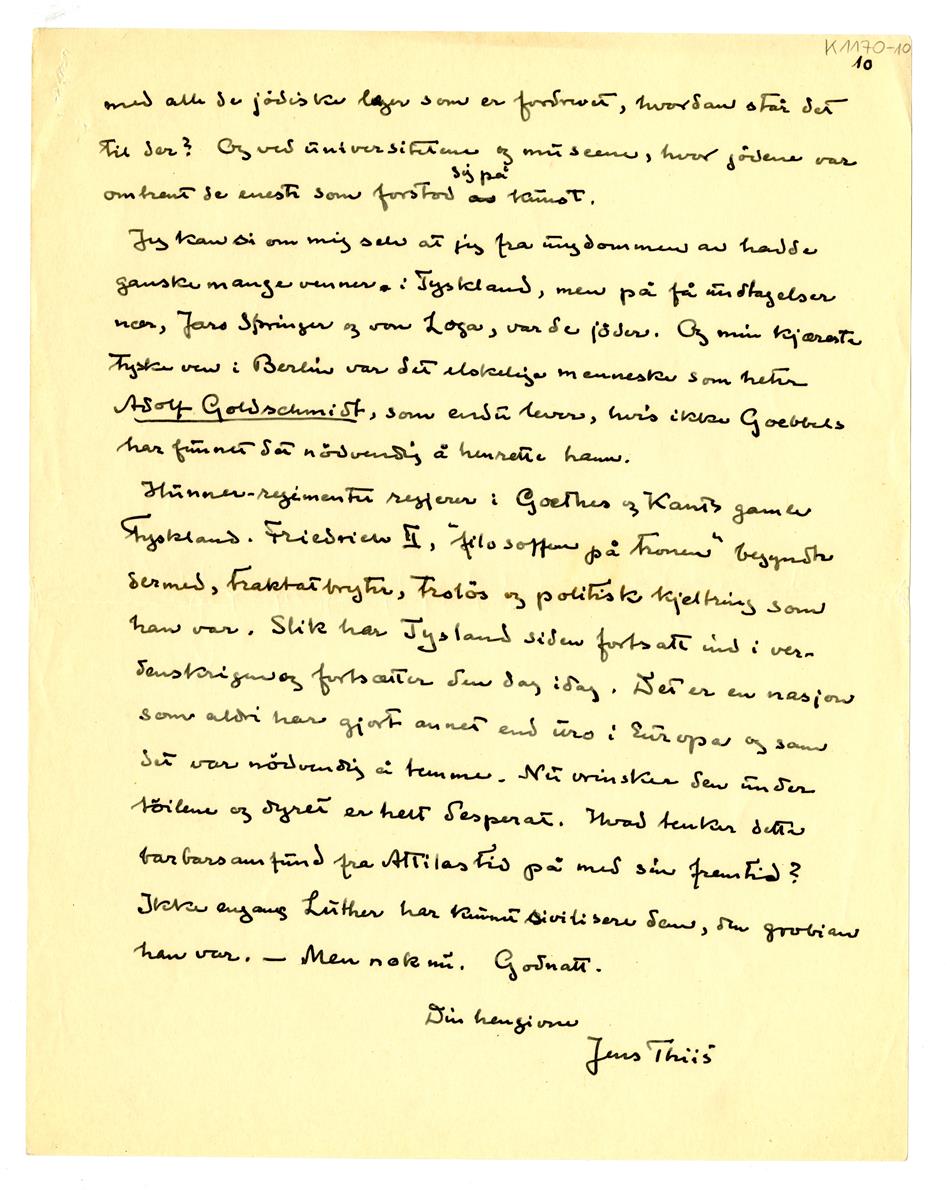 K1170-10
10
med alle de jödiske læger som er fordrevet, hvordan står det
til der? Og ved universitetene og museene, hvor jödene var
sig på
omtrent de eneste som forstod kunst.
Jeg kan si om mig selv at jeg fra ungdommen av hadde
ganske mange venner i Tyskland, men på få undtagelser
nær, Jaro Springer og von Loga, var de jöder. Og min kjæreste
tyske ven i Berlin var det elskelige menneske som heter
Adolf Goldschmidt, som endu lever, hvis ikke Goebbels
har funnet det nödvendig å henrette ham.
Hunner-regimentet regjerer i Goethes og Kants gamle
Tyskland. Friedrich II, "filosoffen på tronen" begyndte
dermed, traktatbryter, trolös og politisk kjeltring som
han var. Slik har Tysland siden fortsatt ind i ver-
denskrigen og fortsætter den dag idag. Det er en nasjon
som aldri har gjort annet end uro i Europa og som
det var nödvendig å temme. Nu vrinsker den under
töilene og dyret er helt desperat. Hvad tenker dette
barbarsamfund fra Attilas tid på med sin fremtid?
Ikke engang Luther har kunnet sivilisere dem, den grobian
han var. — Men nok nu. Godnatt.
Din hengivne
Jens Thiis